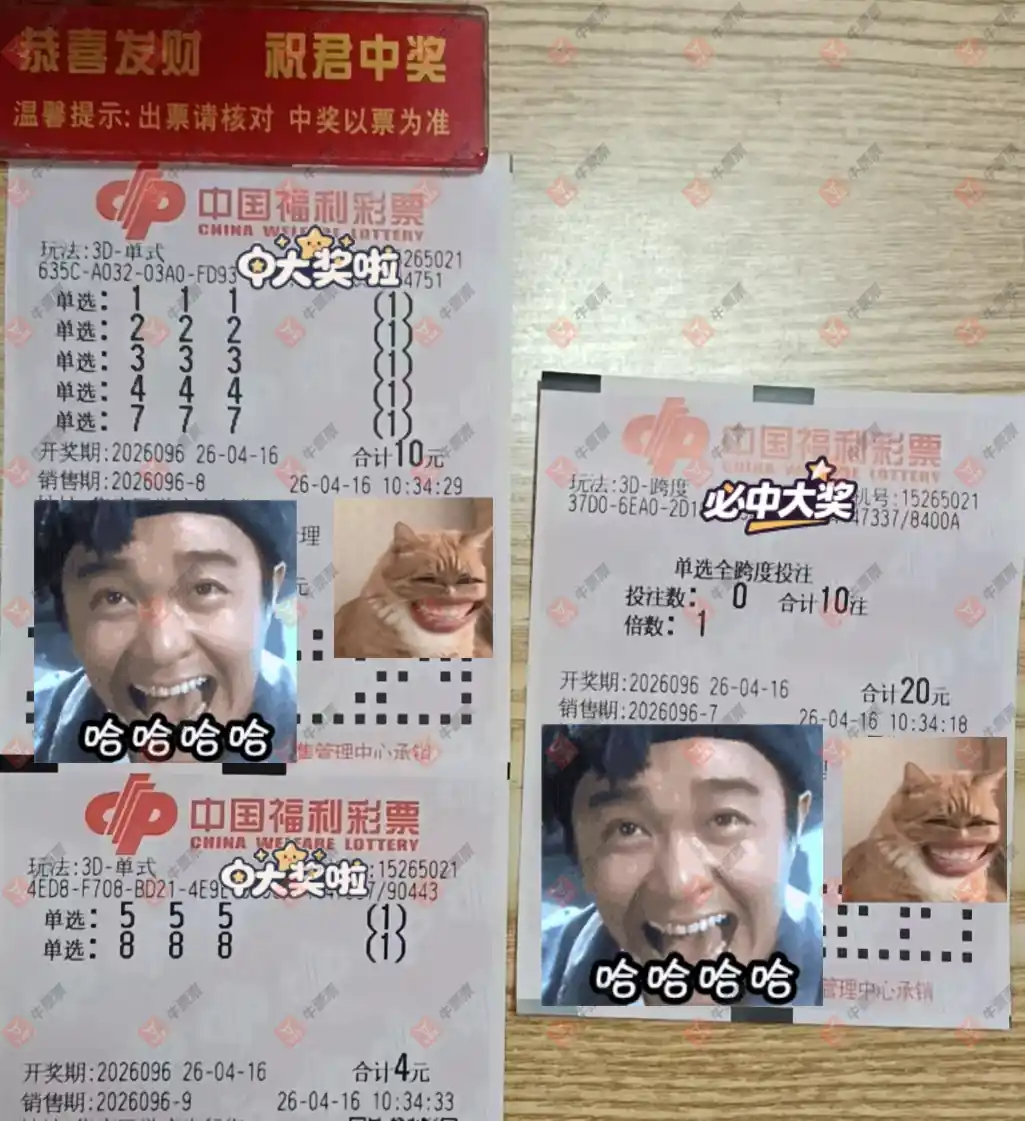 恭喜发财 祝君中奖
温馨提示:出票请核对 中奖以票为准
中国福利彩票
CHINA WELFARE LOTTERY
玩法:3D-单式
265021
635C-A032-03A0-FD93
4751
中大奖啦
单选: 1 1 1 (1)
单选: 2 2 2 (1)
单选: 3 3 3 (1)
单选: 4 4 4 (1)
单选: 7 7 7 (1)
开奖期:2026096 26-04-16 合计10元
销售期:2026096-8 26-04-16 10:34:29
理
元
哈哈哈哈
售管理中心承销
中国福利彩票
CHINA WELFARE LOTTERY
玩法:3D-单式 :15265021
4ED8-F708-BD21-4E9 /90443
中大奖啦
单选: 5 5 5 (1)
单选: 8 8 8 (1)
开奖期:2026096 26-04-16 合计4元
销售期:2026096-9 26-04-16 10:34:33
中国福利彩票
CHINA WELFARE LOTTERY
玩法:3D-跨度 机号:15265021
37D0-6EA0-2D1 47337/8400A
必中大奖
单选全跨度投注
投注数: 0 合计10注
倍数: 1
开奖期:2026096 26-04-16 合计20元
销售期:2026096-7 26-04-16 10:34:18
哈哈哈哈
管理中心承销
牛票票